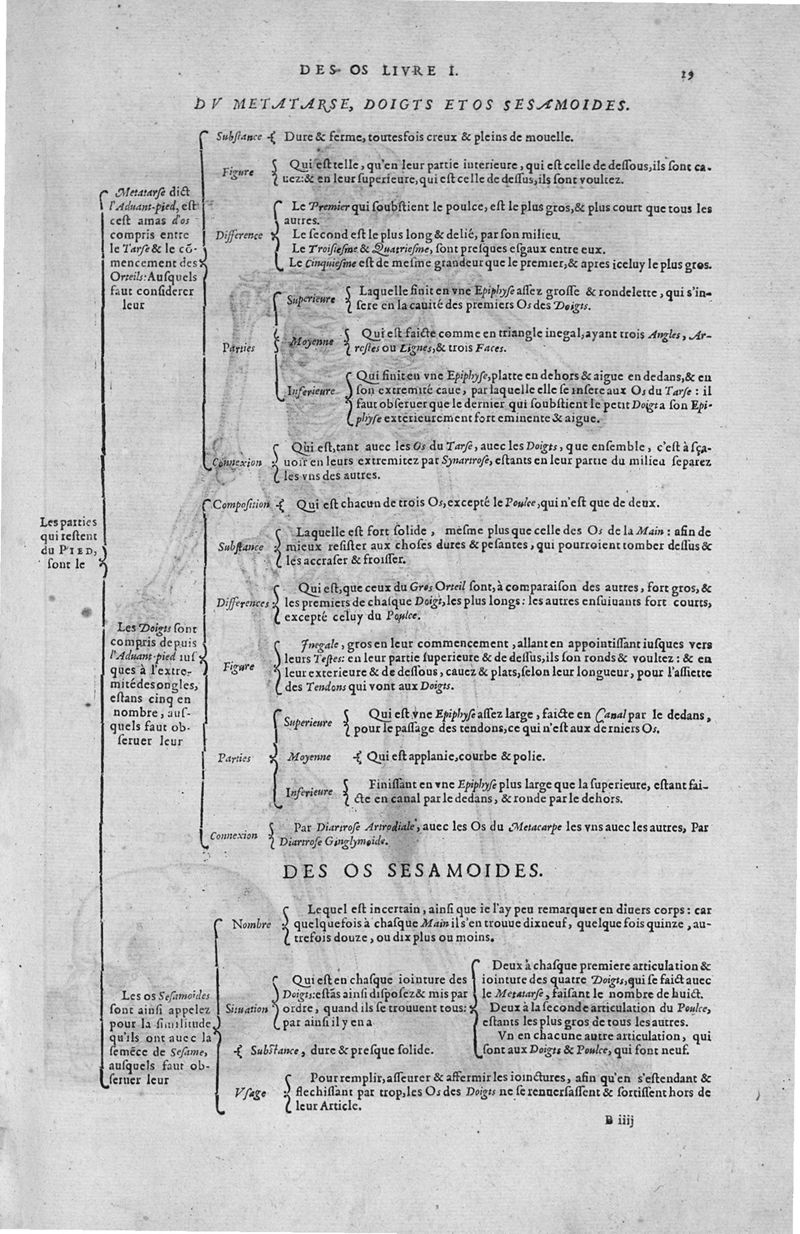 DES OS LIVRE I.
19
DV METATARSE, DOIGTS ET OS SESAMOIDES.
Les parties
qui reſtent
du PIED,
ſont le
Metatarſe dict
l'Aduant-pied, eſt
ceſt amas d'os
compris entre
le Tarſe & le cõ-
mencement des
Orteils: Auſquels
faut conſiderer
leur
Subſtance
Dure & ferme, toutesfois creux & pleins de mouelle.
Figure
Qui eſt telle, qu'en leur partie interieure, qui eſt celle de deſſous, ils ſont ca-
uez: & en leur ſuperieure, qui eſt celle de deſſus, ils ſont voultez.
Difference
Le Premier qui ſoubſtient le poulce, eſt le plus gros, & plus court que tous les
autres.
Le ſecond eſt le plus long & delié, par ſon milieu.
Le Troiſieſme & Quatrieſme, ſont preſques eſgaux entre eux.
Le Cinquieſme eſt de meſme grandeur que le premier, & apres iceluy le plus gros.
Parties
Superieure
Laquelle finit en vne Epiphyſe aſſez groſſe & rondelette, qui s'in-
ſere en la cauité des premiers Os des Doigts.
Moyenne
Qui eſt faicte comme en triangle inegal, ayant trois Angles, Ar-
reſtes ou Lignes, & trois Faces.
Inferieure
Qui finit en vne Epiphyſe, platte en dehors & aigue en dedans, & en
ſon extremité caue, par laquelle elle ſe inſere aux Os du Tarſe: il
faut obſeruer que le dernier qui ſoubſtient le petit Doigt a ſon Epi-
phyſe exterieurement fort eminente & aigue.
Connexion
Qui eſt, tant auec les Os du Tarſe, auec les Doigts, que enſemble, c'eſt à ſça-
uoir en leurs extremitez par Synartroſe, eſtants en leur partie du milieu ſeparez
les vns des autres.
Les Doigts ſont
compris depuis
l'Aduant-pied iuſ
ques à l'extre-
mité des ongles,
eſtans cinq en
nombre, auſ-
quels faut ob-
ſeruer leur
Compoſition
Qui eſt chacun de trois Os, excepté le Poulce, qui n'eſt que de deux.
Subſtance
Laquelle eſt fort ſolide, meſme plus que celle des Os de la Main: afin de
mieux reſiſter aux choſes dures & peſantes, qui pourroient tomber deſſus &
les accraſer & froiſſer.
Differences
Qui eſt, que ceux du Gros Orteil ſont, à comparaiſon des autres, fort gros, &
les premiers de chaſque Doigt, les plus longs: les autres enſuiuants fort courts,
excepté celuy du Poulce.
Figure
Inegale, gros en leur commencement, allant en appointiſſant iuſques vers
leurs Teſtes: en leur partie ſuperieure & de deſſus, ils ſon ronds & voultez: & en
leur exterieure & de deſſous, cauez & plats, ſelon leur longueur, pour l'aſſiette
des Tendons qui vont aux Doigts.
Parties
Superieure
Qui eſt vne Epiphyſe aſſez large, faicte en Canal par le dedans,
pour le paſſage des tendons, ce qui n'eſt aux derniers Os.
Moyenne
Qui eſt applanie, courbe & polie.
Inferieure
Finiſſant en vne Epiphyſe plus large que la ſuperieure, eſtant fai-
cte en canal par le dedans, & ronde par le dehors.
Connexion
Par Diartroſe Artrodiale, auec les Os du Metacarpe les vns auec les autres, Par
Diartroſe Ginglymoide.
DES OS SESAMOIDES.
Les os Seſamoides
ſont ainſi appelez
pour la ſimilitude
qu'ils ont auec la
ſemēce de Seſame,
auſquels faut ob-
ſeruer leur
Nombre
Lequel eſt incertain, ainſi que ie l'ay peu remarquer en diuers corps: car
quelquefois à chaſque Main il s'en trouue dixneuf, quelque fois quinze, au-
trefois douze, ou dix plus ou moins.
Situation
Qui eſt en chaſque iointure des
Doigts: eſtãs ainſi diſpoſez & mis par
ordre, quand ils ſe trouuent tous:
par ainſi il y en a
Deux à chaſque premiere articulation &
iointure des quatre Doigts, qui ſe faict auec
le Metatarſe, faiſant le nombre de huict.
Deux à la ſeconde articulation du Poulce,
eſtants les plus gros de tous les autres.
Vn en chacune autre articulation, qui
ſont aux Doigts & Poulce, qui font neuf.
Subſtance, dure & preſque ſolide.
Vſage
Pour remplir, aſſeurer & affermir les ioinctures, afin qu'en s'eſtendant &
flechiſſant par trop, les Os des Doigts ne ſe renuerſaſſent & ſortiſſent hors de
leur Article.
B iiij